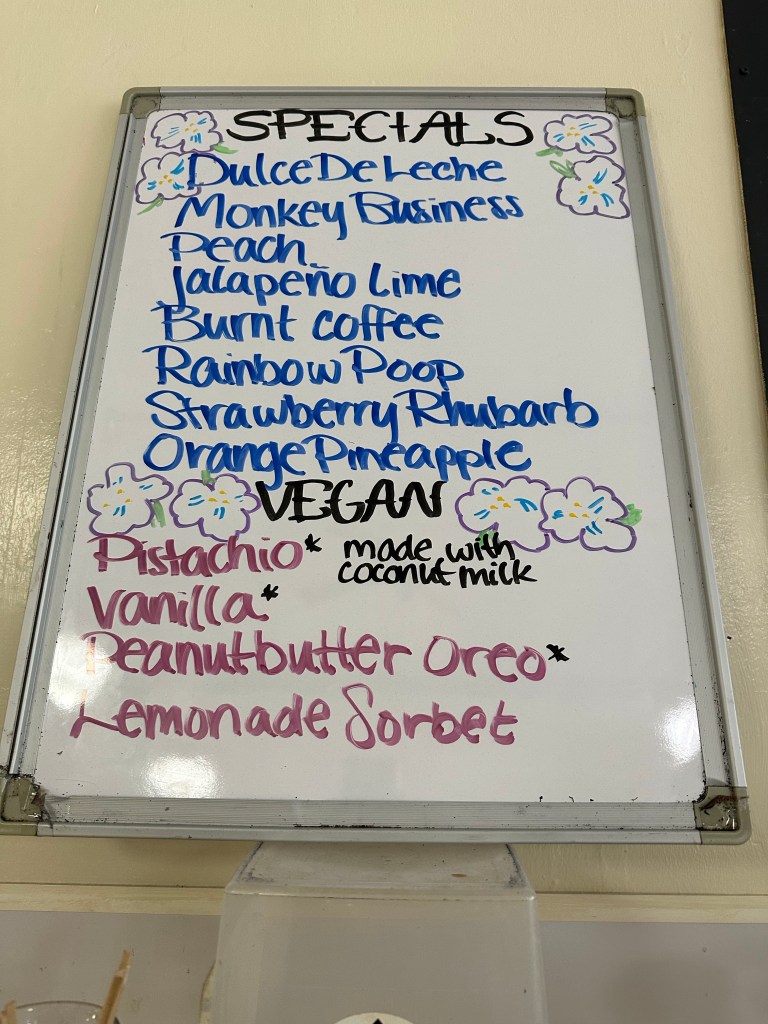 SPECIALS
Dulce De Leche
Monkey Business
Peach
Jalapeño Lime
Burnt coffee
Rainbow Poop
Strawberry Rhubarb
Orange Pineapple
VEGAN
Pistachio* made with
coconut milk
Vanilla*
Peanutbutter Oreo*
Lemonade Sorbet